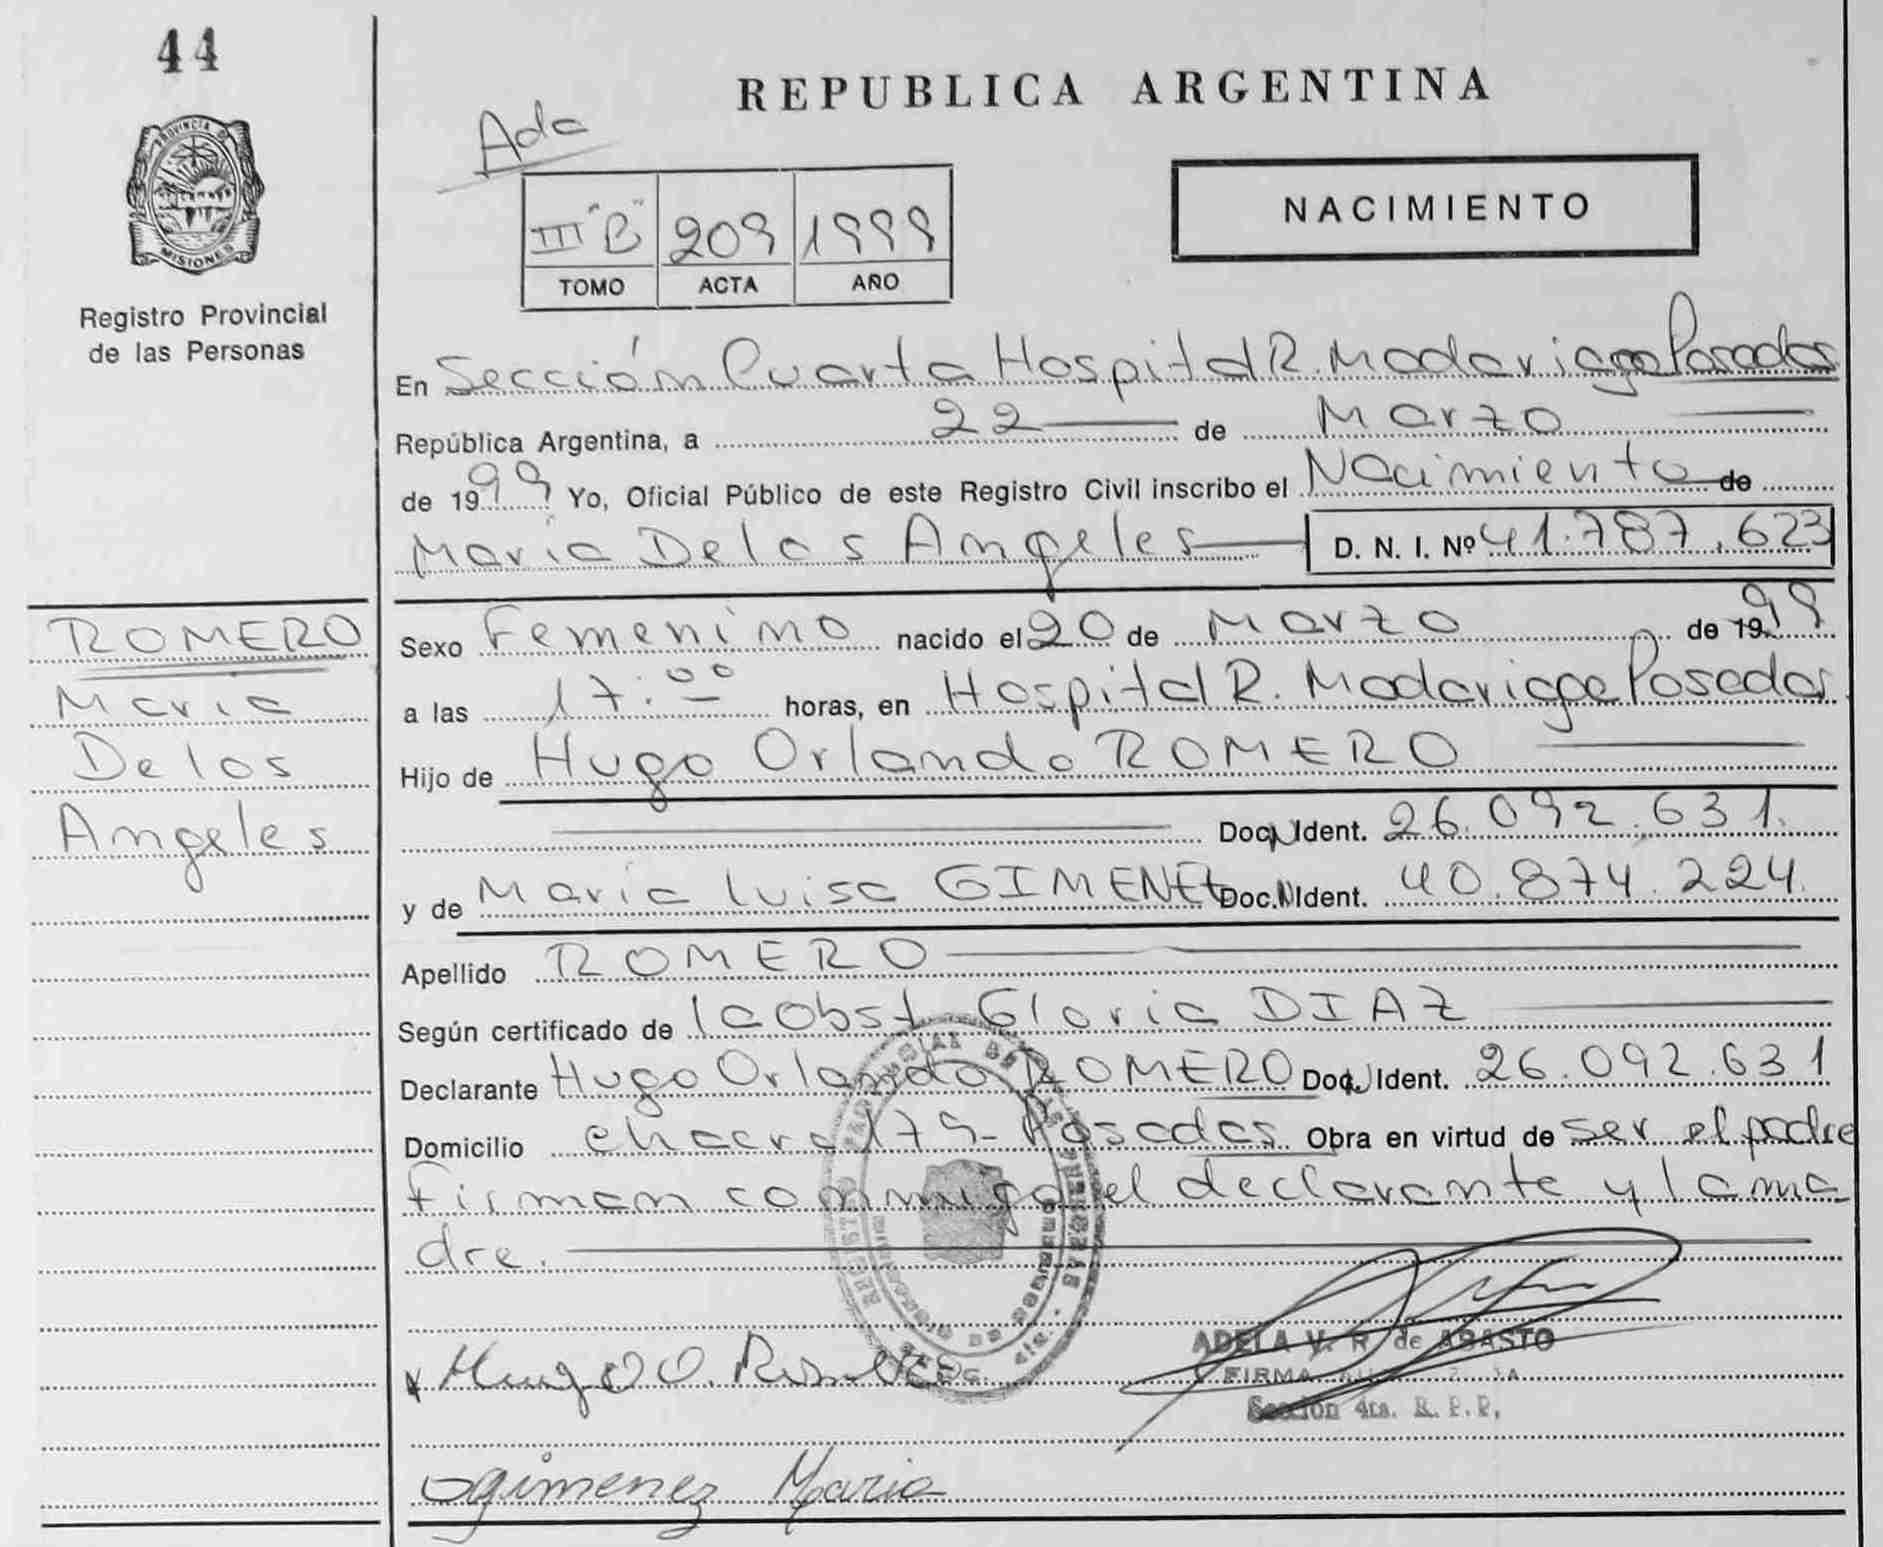 44
PROVINCIA DE
MISIONES
Registro Provincial
de las Personas
ROMERO
Maria
De los
Angeles
REPUBLICA ARGENTINA
Ada
III "B" 209 1999
TOMO ACTA AÑO
NACIMIENTO
En Sección Cuarta Hospital R. Madariaga Posadas
República Argentina, a 22 de Marzo
de 1999 Yo, Oficial Público de este Registro Civil inscribo el Nacimiento de
Maria De los Angeles D. N. I. Nº 41.787.623
Sexo Femenino nacido el 20 de Marzo de 1999
a las 17:00 horas, en Hospital R. Madariaga Posadas.
Hijo de Hugo Orlando ROMERO
Doc. N Ident. 26.092.631.
y de Maria Luisa GIMENEZ Doc. N Ident. 40.874.224.
Apellido ROMERO
Según certificado de la Obst. Gloria DIAZ
Declarante Hugo Orlando ROMERO Doc. N Ident. 26.092.631
Domicilio chacra 179- Posadas Obra en virtud de ser el padre
Firman conmigo el declarante y la ma
dre.
Hugo O. Romero
ADELA V. R. de ABASTO
FIRMA
Sección 4ta. R. P. P.
Gimenez Maria